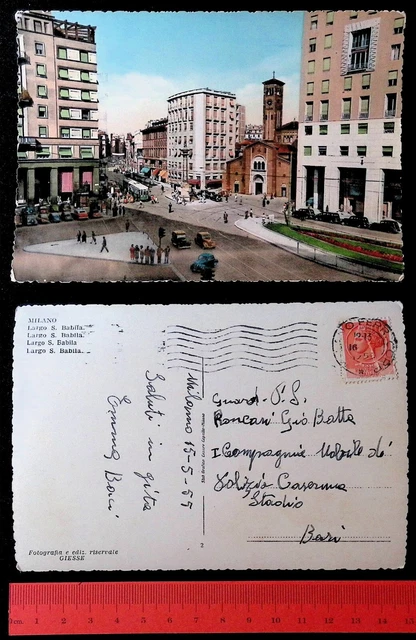 MILANO
Largo S. Babila.
Largo S. Babila.
Largo S. Babila
Largo S. Babila.
Milano 15-5-55
Saluti in gita
Emma Boci
Guard. P.S.
Roncari Gio Batta
I Compagnia Mobile di
Polizia Caserma
Stadio
Bari
Fotografia e ediz. riservate
GIESSE
2
cm. 1 2 3 4 5 6 7 8 9 10 11 12 13 14 15